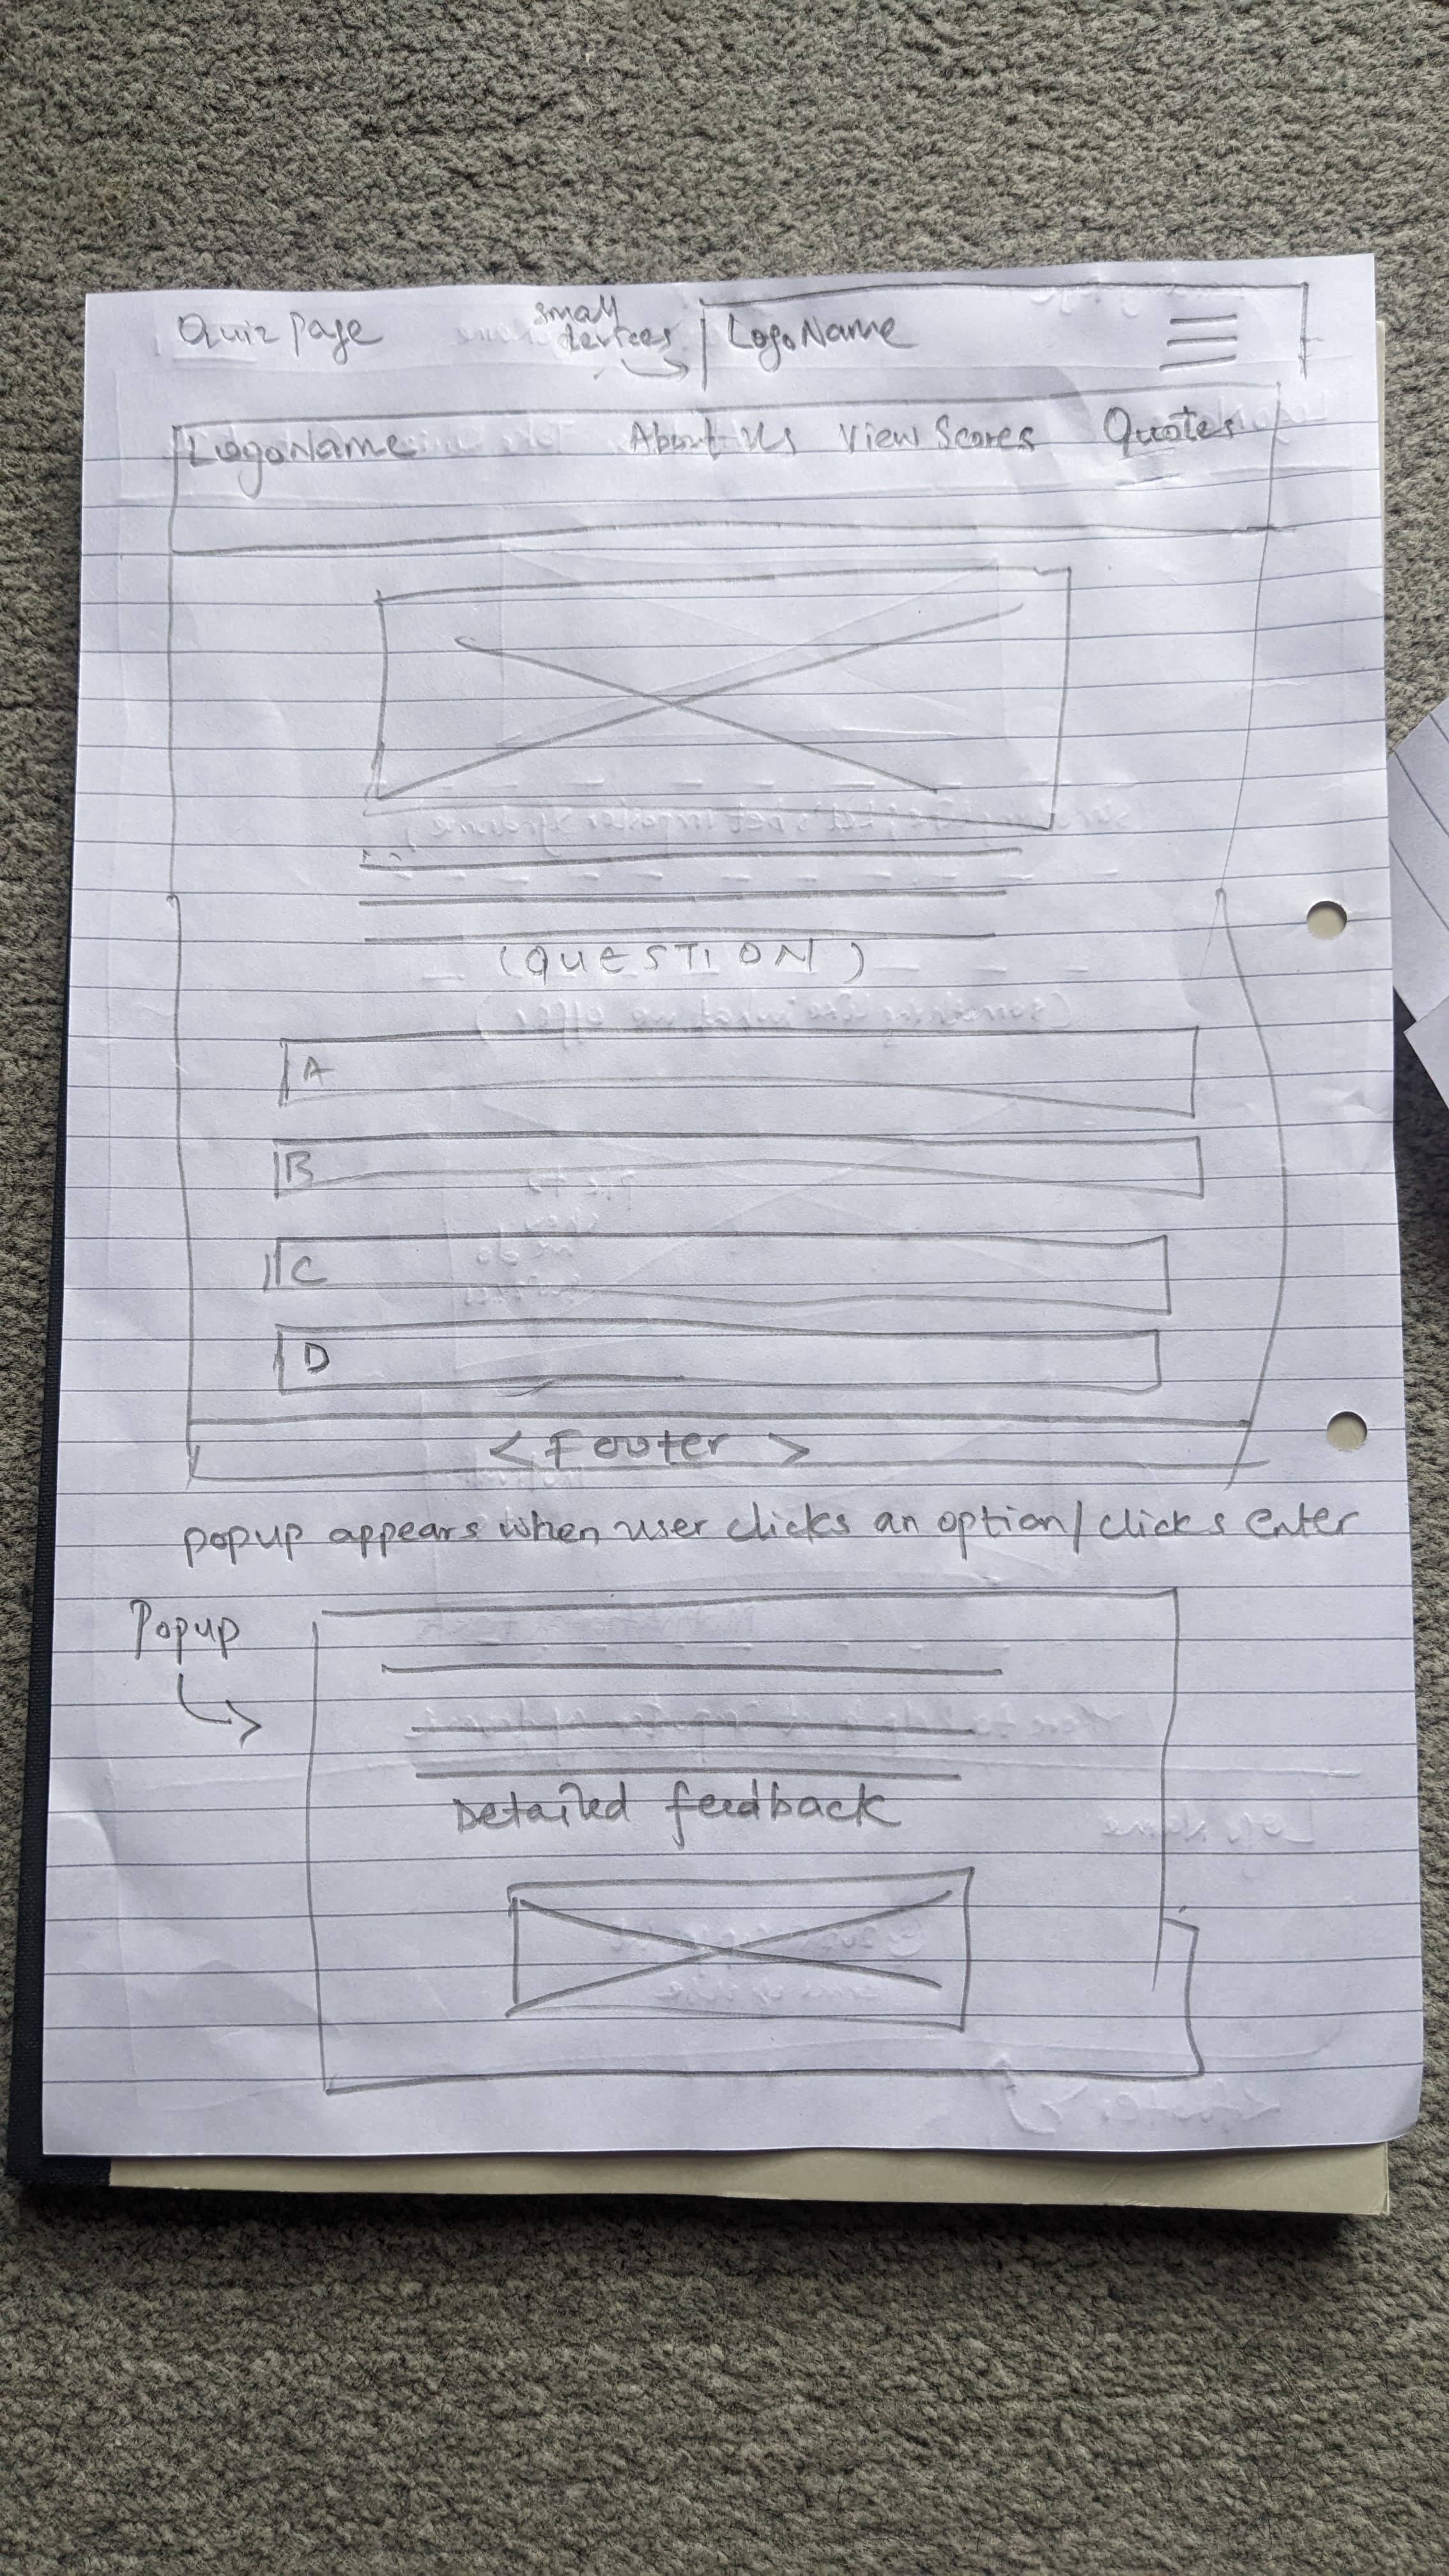 Quiz page
small
devices
LogoName
LogoName About Us View Scores Quotes
(QUESTION)
A
B
C
D
<Footer>
popup appears when user clicks an option/clicks enter
Popup
Detailed feedback